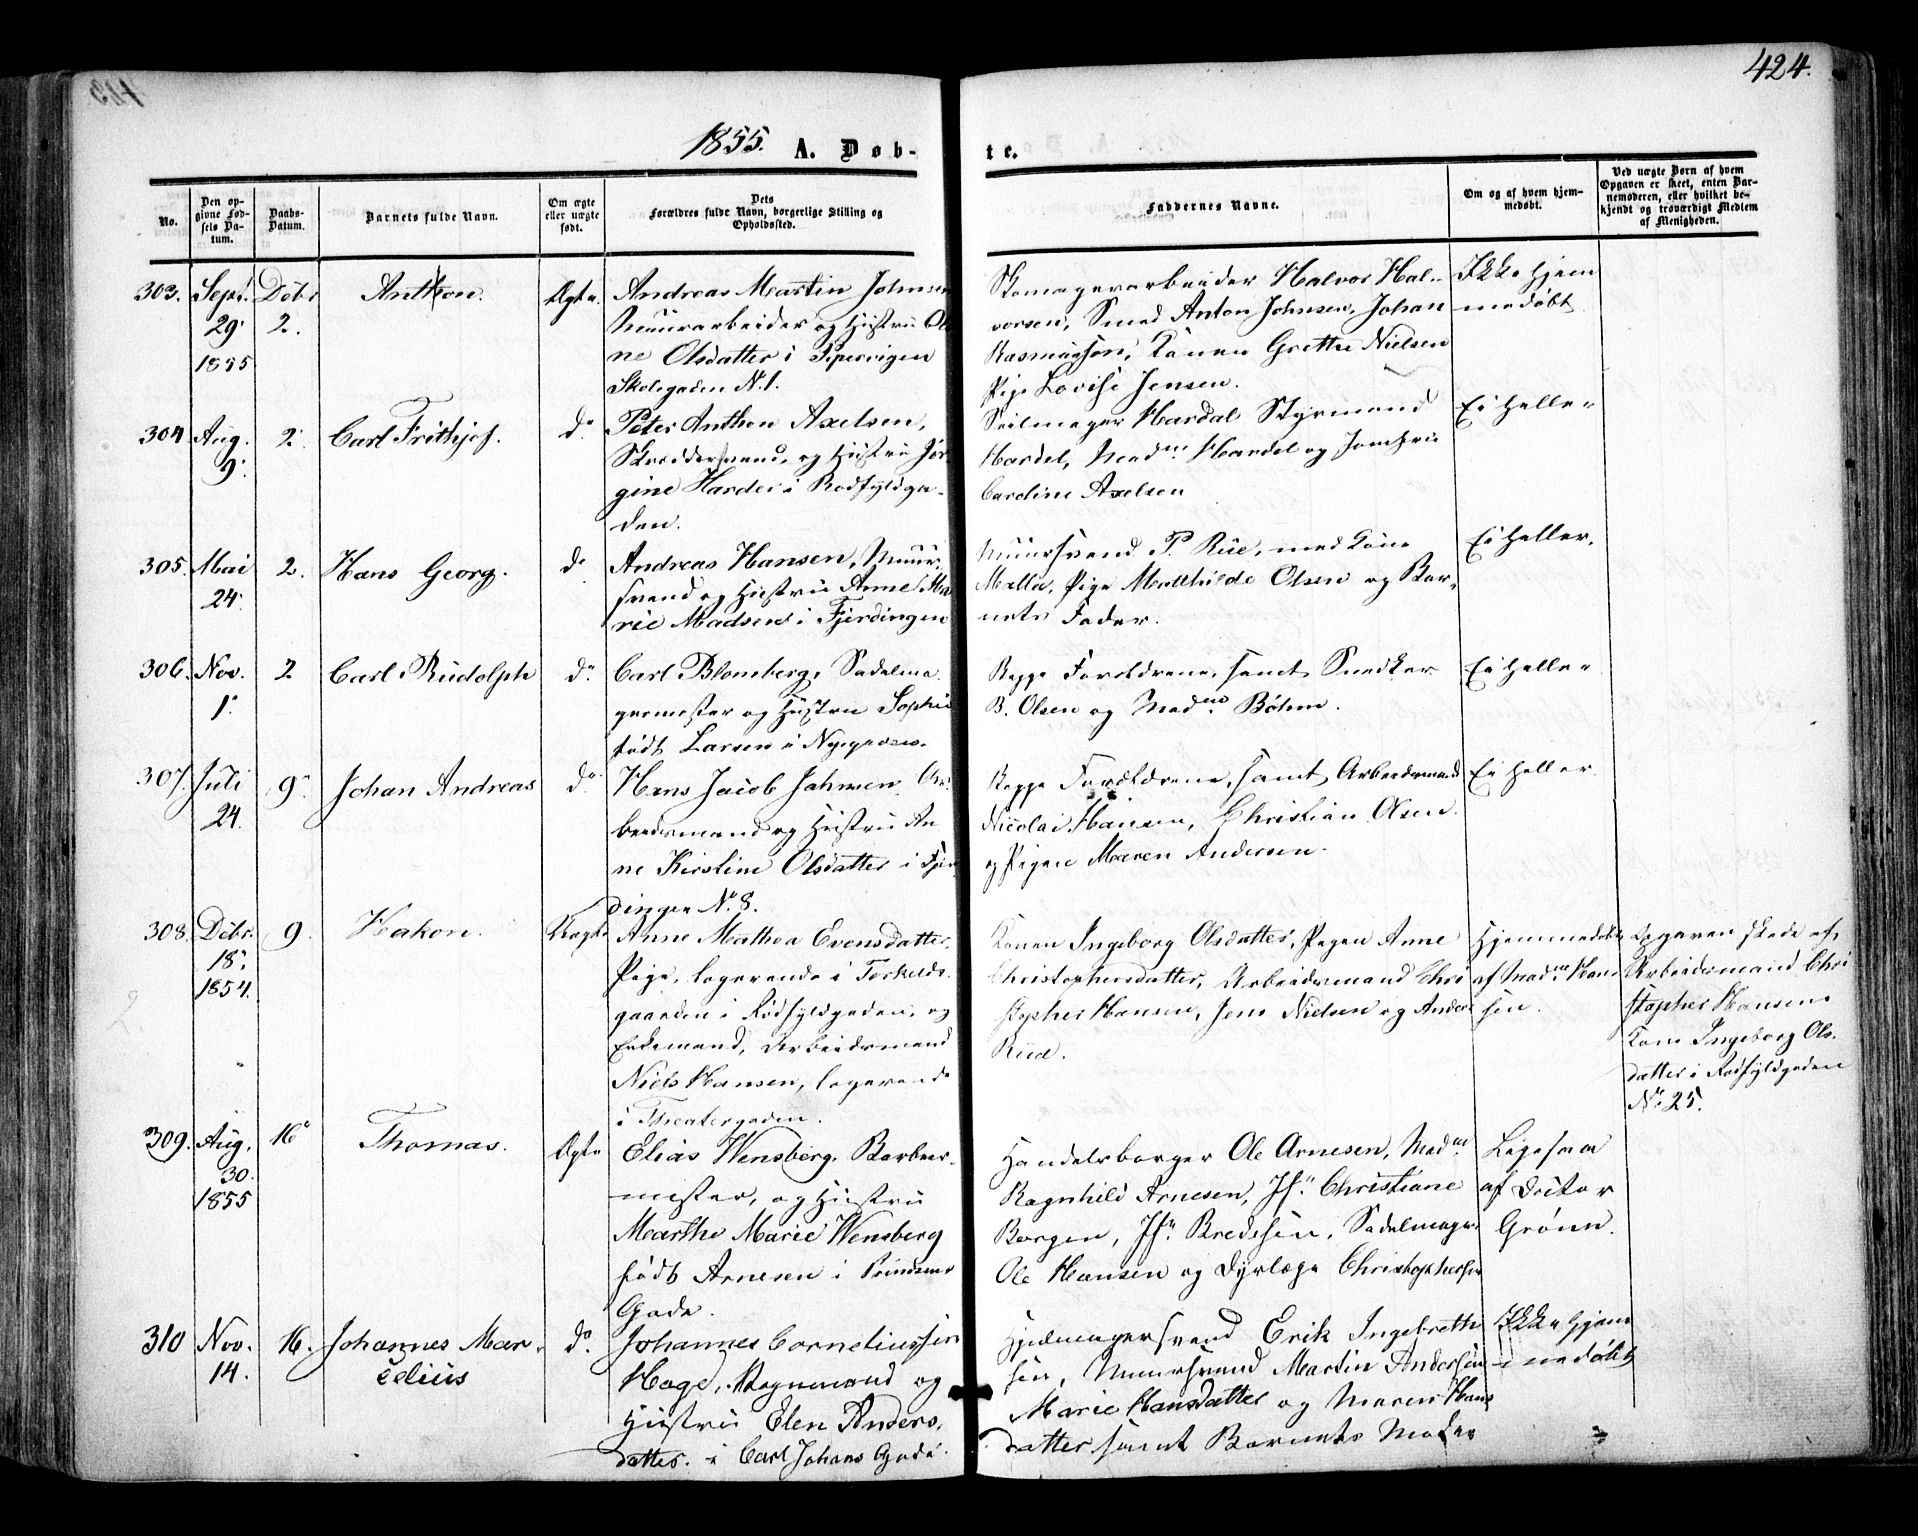 424.
1855. A. Døb- te.
No.
Den op-
givne Fød-
sels Da-
tum.
Daabs-
Datum.
Barnets fulde Navn.
Om ægte
eller uægte
født.
Dets
Forældres fulde Navn, borgerlige Stilling og
Opholdssted.
Faddernes Navne.
Om og af hvem hjem-
medøbt.
Ved uægte Børn af hvem
Opgaven er skeet, enten Bar-
nemoderen, eller hvilket be-
kjendt og troværdigt Medlem
af Menigheden.
303.
Sept.
29.
1855
Debr
2.
Anthon.
Ægte.
Andreas Martin Johnsen
Muurarbeider og Hustru
ne Olsdatter i Pipervigen
Skolegaden N. 1.
Skomagerarbeider Halvor Hal-
vorsen, Smed Anton Johnsen, Johan
Rasmussen, Konen Grethe Nielsen
Pige Lovise Jensen.
Ikke hjem
medøbt
304
Aug.
9.
2.
Carl Frithjof.
do
Peter Anthon Axelsen,
Skreddersvend, og Hustru Jør-
gine Harder i Rødfyldga-
den.
Seilmager Hardal Styrmand
Hardel, Madme Handel og Jomfru
Caroline Axelsen
Ei heller
305.
Mai
24.
2.
Hans Georg.
do
Andreas Hansen, Muur-
svend og Hustru Anne Ma
rie Madsen i Fjerdingen
Muursvend P. Rüe, med Kone
Malla, Pige Mathilde Olsen og Bar-
nets Fader.
Ei heller.
306.
Nov.
1.
2
Carl Rudolph
do
Carl Blomberg, Sadelma
germester og Hustru Sophie
født Larsen i Nygaden.
Begge Forældrene, samt Snedker
B. Olsen og Madme Bøhm.
Ei heller
307.
Juli
24.
9.
Johan Andreas
do
Hans Jacob Jahnsen, Ar-
beidsmand og Hustru An
ne Kirstine Olsdatter i Fjer
dingen No 8.
Begge Forældrene, samt Arbeidsmand
Nicolai Hansen, Christian Olsen
og Pigen Maren Andersen.
Ei heller
308.
Debr.
18.
1854.
9.
Hakon.
Uægte
Anne Mathea Evensdatter
Pige, logerende i Torkelds-
gaarden i Rødfyldgaden, og
Enkemand, Arbeidsmand
Niels Hansen, logerende
i Theatergaden.
Konen Ingeborg Olsdatter, Pigen Anne
Christophersdatter, Arbeidsmand Chri
stopher Hansen, Jens Nielsen og Anders
Rud.
Hjemmedøbt
af Madme Han
sen.
Opgaven skede af
Arbeidsmand Chri
stopher Hansens
Kone Ingeborg Ols-
datter i Rødfyldgaden
No 25.
309.
Aug.
30.
1855
16
Thomas.
Ægte
Elias Wensberg, Barbeer-
mester, og Hustru
Marthe Marie Wensberg
født Arnesen i Prindsens
Gade.
Handelsborger Ole Arnesen, Madme
Ragnhild Arnesen, Jfr Christiane
Borgen, Jfr Bredesen, Sadelmager
Ole Hansen og Dyrlæge Christophersen
Ligesaa
af Doctor
Grønn.
310
Nov.
14.
16.
Johannes Mar-
celius
do
Johannes Corneliussen
Hage, Vognmand og
Hustru Elen Anders-
datter. i Carl Johans Gade.
Hjulmagersvend Erik Ingebreth
sen, Muursvend Martin Andersen
Marie Hansdatter og Maren Hans
datter samt Barnets Moder
Ikke hjem
medøbt